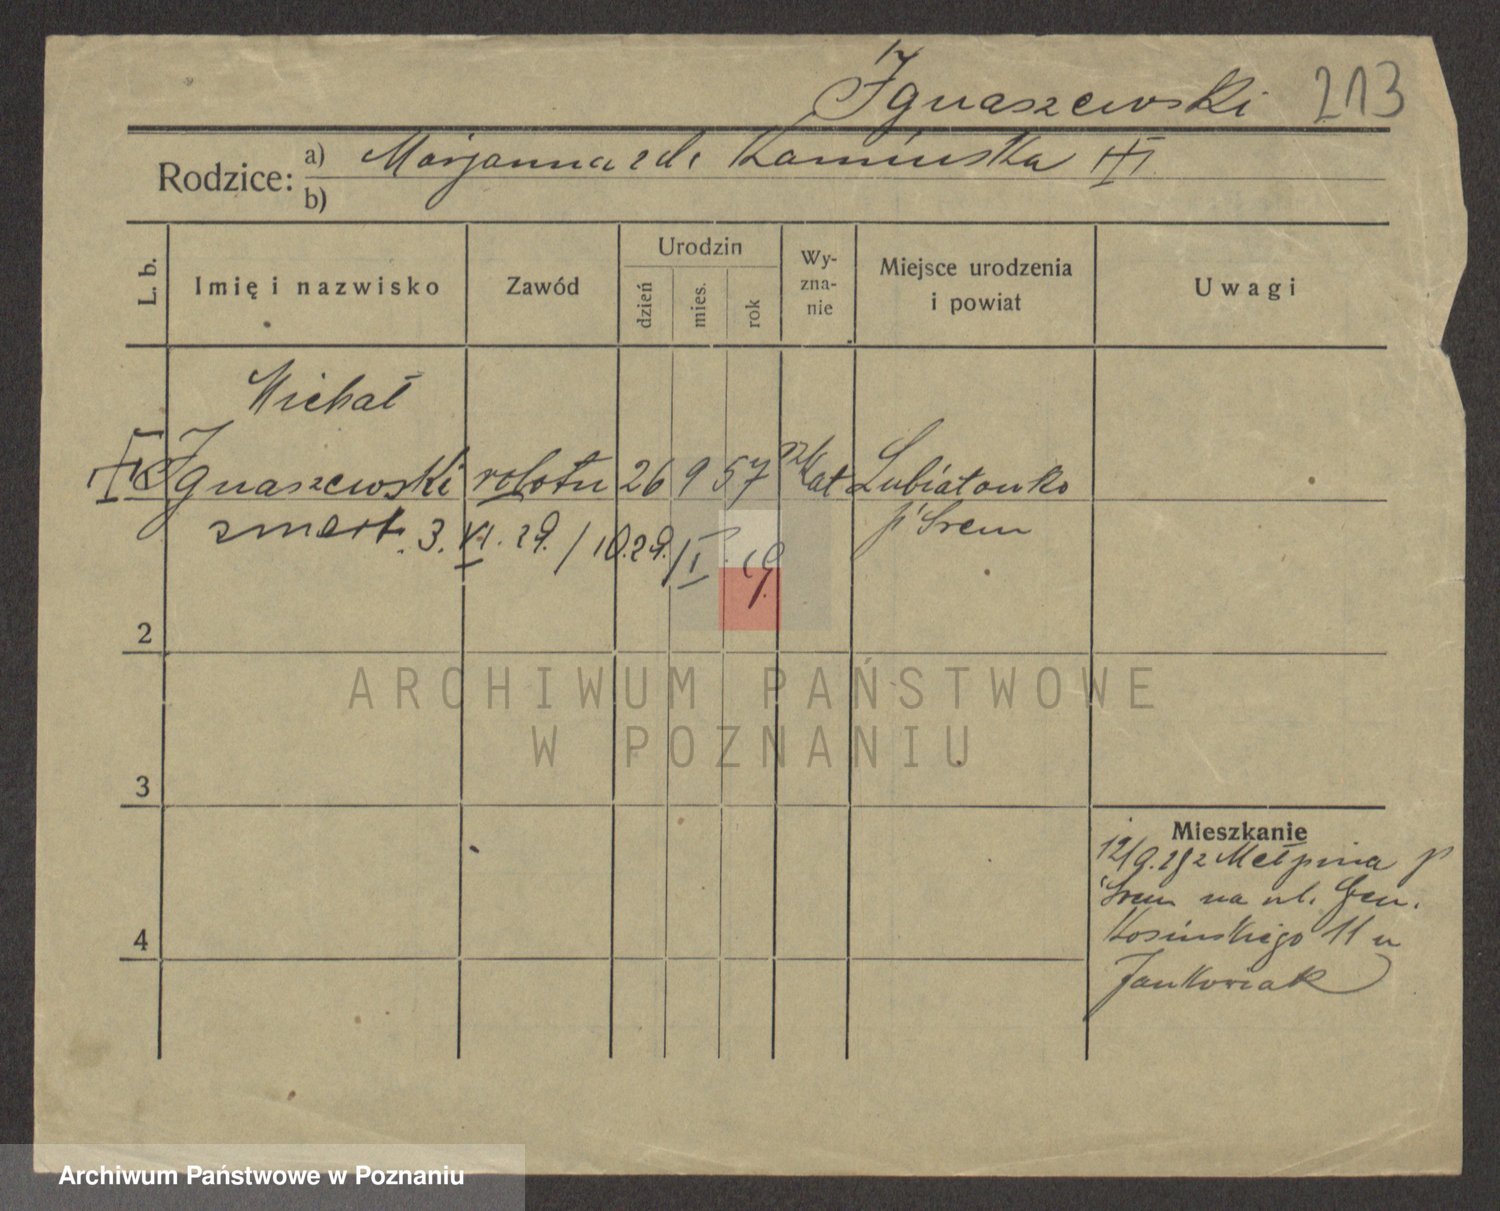 Ignaszewski 213
Rodzice: a) Marjanna zd. Kamińska
b)
L. b. Imię i nazwisko Zawód Urodzin dzień mies. rok Wy-zna-nie Miejsce urodzenia i powiat Uwagi
Michał
Ignaszewski robotn 26 9 57 kat Lubiatowko
p Śrem
zmarł. 3. XI. 29. / 10.29. / I
2
ARCHIWUM PAŃSTWOWE
W POZNANIU
3
Mieszkanie
12/9.28 z Mełpina p
Śrem na ul. Gen.
Kosińskiego 11 u
Jankowiak
4
Archiwum Państwowe w Poznaniu